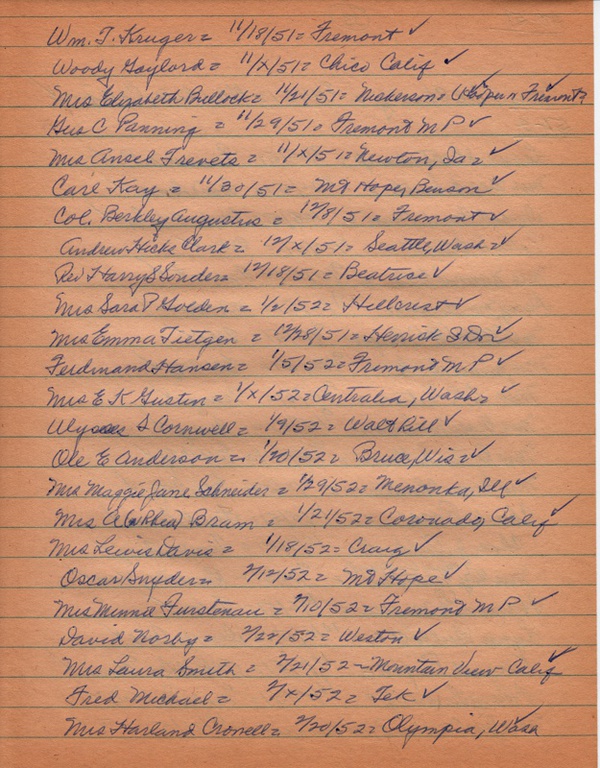 Wm. T. Kruger = 11/18/51 = Fremont ✓
Woody Gaylord = 11/X/51 = Chico Calif ✓
Mrs Elizabeth Bullock = 11/21/51 = Nickerson = Fremont ✓
Gus C Panning = 11/29/51 = Fremont M P ✓
Mrs Ansel Trevets = 11/X/51 = Newton, Ia = ✓
Carl Kay = 11/30/51 = Mt Hope, Benson ✓
Col. Berkley Augustus = 12/8/51 = Fremont ✓
Andrew Hicks Clark = 12/X/51 = Seattle, Wash = ✓
Rev Harry S Souders = 12/18/51 = Beatrice ✓
Mrs Sara P Golden = 1/2/52 = Hillcrest ✓
Mrs Emma Tietgen = 12/28/51 = Herrick S D = ✓
Ferdinand Hansen = 1/5/52 = Fremont M P ✓
Mrs E K Gustin = 1/X/52 = Centralia, Wash = ✓
Ulysses S Cornwell = 1/9/52 = Walthill ✓
Ole E Anderson = 1/20/52 = Bruce, Wis = ✓
Mrs Maggie Jane Schneider = 1/29/52 = Menonka, Ill ✓
Mrs A (Rhea) Bram = 1/21/52 = Coronado, Calif ✓
Mrs Lewis Davis = 1/18/52 = Craig ✓
Oscar Snyder = 2/12/52 = Mt Hope ✓
Mrs Minna Furstenau = 2/10/52 = Fremont M P ✓
David Norby = 2/22/52 = Weston ✓
Mrs Laura Smith = 2/21/52 = Mountain View Calif ✓
Fred Michael = 2/X/52 = Tek ✓
Mrs Harland Cronell = 2/20/52 = Olympia, Wash